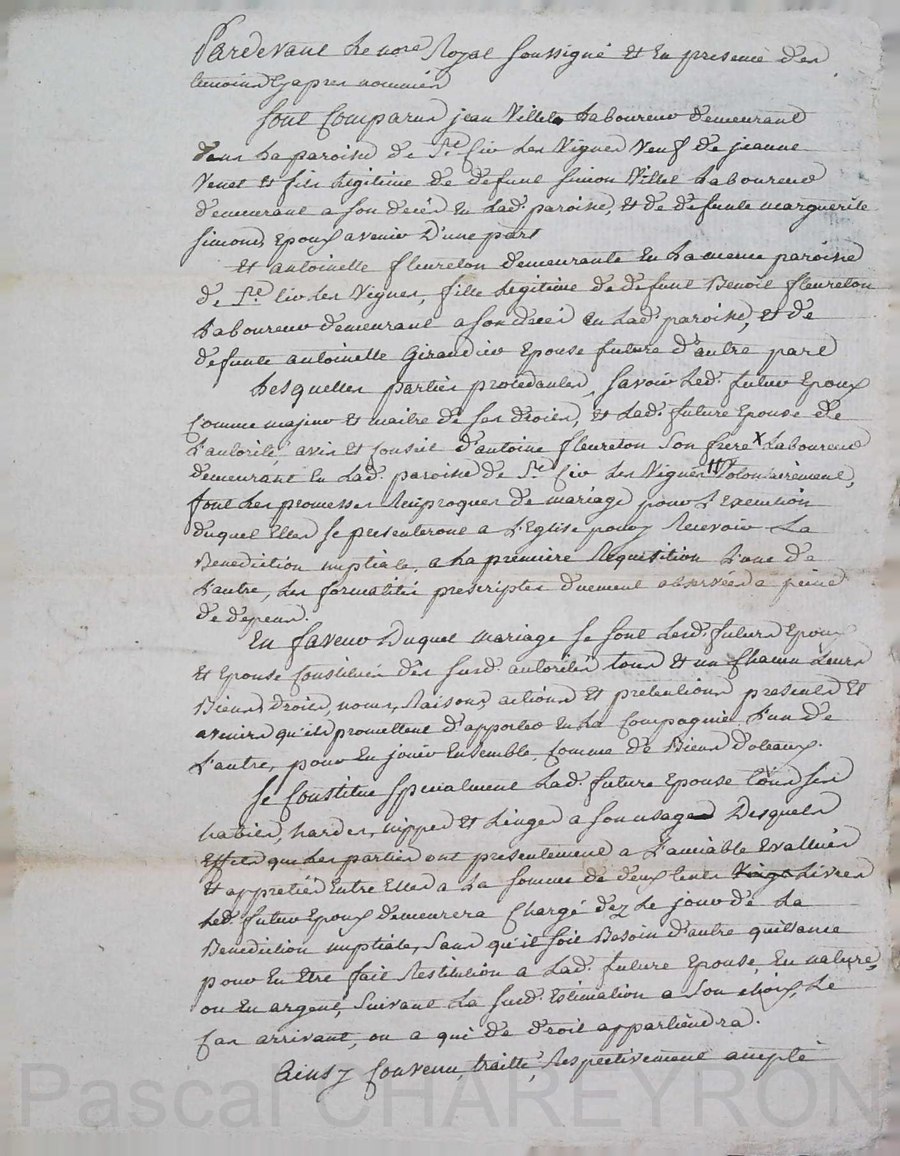 Pardevant le no.re Royal soussigné et en presence des
temoins cy apres nommés
Sont Comparus jean Villet Laboureur demeurant
dans la paroisse de St. Cir les Vignes Veuf de jeanne
Venet et fils legitime de defunt simon Villet Laboureur
demeurant a son decès en lad. paroisse, et de defunte marguerite
simond, Epoux avenir d'une part
Et antoinette fleureton demeurante en la meme paroisse
de St. Cir les Vignes, fille legitime de defunt Benoit fleureton
Laboureur demeurant a son decès en lad. paroisse, et de
defunte antoinette Girand Epouse future d'autre part
Lesquelles parties procedantes, savoir led. futur Epoux
Comme majeur et maitre de ses droits, et lad. future Epouse de
L'autorité, avis et Conseil d'antoine fleureton son frere x Laboureur
demeurant en lad. paroisse de St. Cir les Vignes Volontairement,
font les promesses reciproques de mariage pour l'Execution
duquel Elles se presenteront a l'Eglise pour y Recevoir La
Benediction nuptiale, a la premiere Requisition L'une de
L'autre, les formalités prescriptes duement observées a peine
de depens.
En faveur Duquel mariage se sont lesd. futurs Epoux
Et Epouse Constitués des susd. autorités tous et un Chacun Leurs
Biens, droits, noms, Raisons, actions Et pretentions presents Et
avenirs qu'ils promettent d'apporter en la Compagnie L'un de
L'autre, pour en jouir Ensemble, Comme de Biens dotaux.
Se Constitue Specialement lad. future Epouse tous ses
habits, hardes, nippes et Linges a son usage Desquels
Effets que les parties ont presentement a L'amiable Evalués
Et appretiés Entre Elles a la somme de deux Cents vingt Livres
led. futur Epoux demeurera Chargé dez le jour de la
Benediction nuptiale, sans qu'il soit Besoin d'autre quittance
pour En Etre fait Restitution a lad. future Epouse, En nature,
ou En argent, suivant La susd. Estimation a son choix, Le
Cas arrivant, ou a qui de droit appartiendra.
Ainsy Convenu, traitté, Respectivement accepté
Pascal CHAREYRON